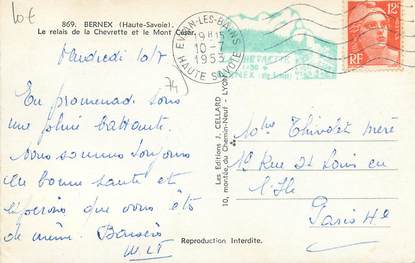 10€
869. BERNEX (Haute-Savoie).
Le relais de la Chevrette et le Mont César.
Vendredi 10/7
En promenade sous
une pluie battante.
Nous sommes toujours
en bonne santé et
espérons que vous êtes
de même. Baisers
EVIAN-LES-BAINS
19H15
10-7
1953
HAUTE SAVOIE
12F
RF
74
Les Editions J. CELLARD
10, montée du Chemin-Neuf - LYON
Mme Thivolet mère
18 Rue St Louis en
l'Ile
Paris 4e
Reproduction Interdite.